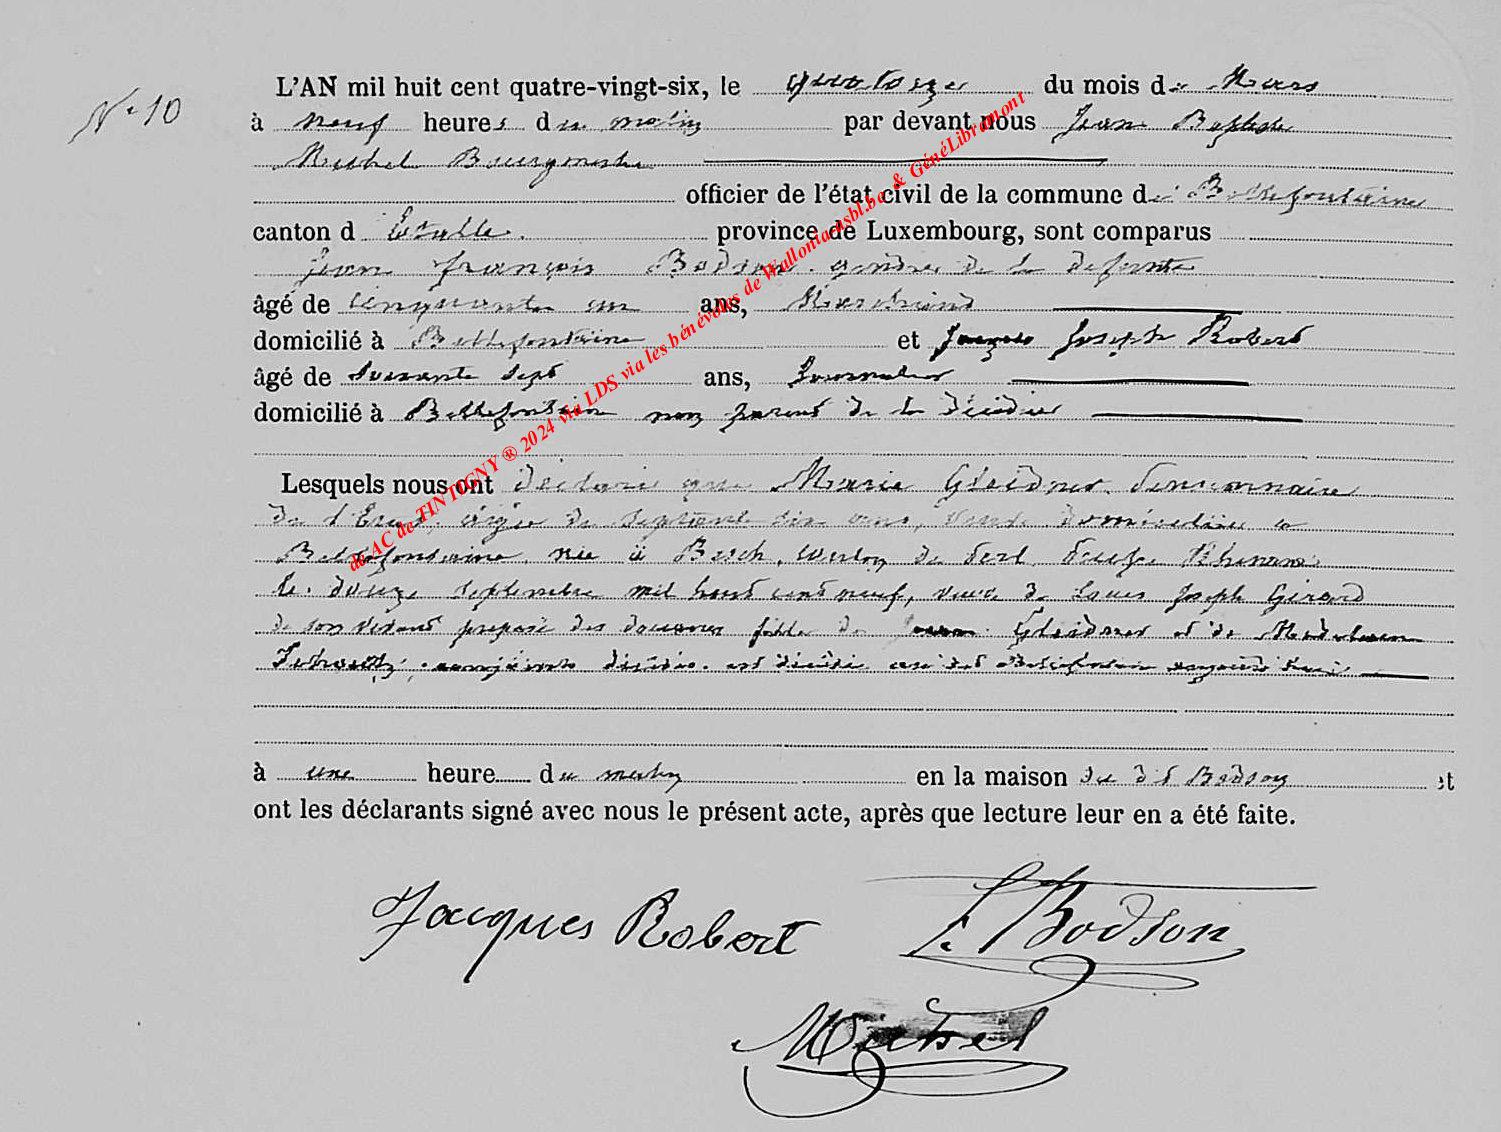 N° 10
L'AN mil huit cent quatre-vingt-six, le quatorze du mois de Mars
à neuf heures du matin par devant nous Jean Baptiste
Michel Bourgmestre
officier de l'état civil de la commune de Bellefontaine
canton d Etalle. province de Luxembourg, sont comparus
Jean François Bodson gendre de la défunte
âgé de cinquante un ans, Marchand
domicilié à Bellefontaine et Jacques Joseph Robert
âgé de soixante sept ans, Journalier
domicilié à Bellefontaine non parent de la décédée
Lesquels nous ont déclaré que Marie Gleidner pensionnaire
de l'Etat, âgée de septante six ans, domiciliée à
Bellefontaine née à Besch, canton de Perl Prusse Rhénane
le douze septembre mil huit cent neuf, veuve de Louis Joseph Girard
de son vivant préposé des douanes fille de Gleidner et de Madeleine
conjoints décédés. est décédée au dit Bellefontaine aujourd'hui
à une heure du matin en la maison du dit Bodson et
ont les déclarants signé avec nous le présent acte, après que lecture leur en a été faite.
Jacques Robert F. Bodson
Michel
de AC de TINTIGNY ® 2024 via LDS via les bénévoles de Wallonia-asbl.be & GénéLibramont